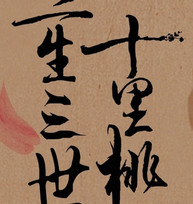 三生三世
十里桃